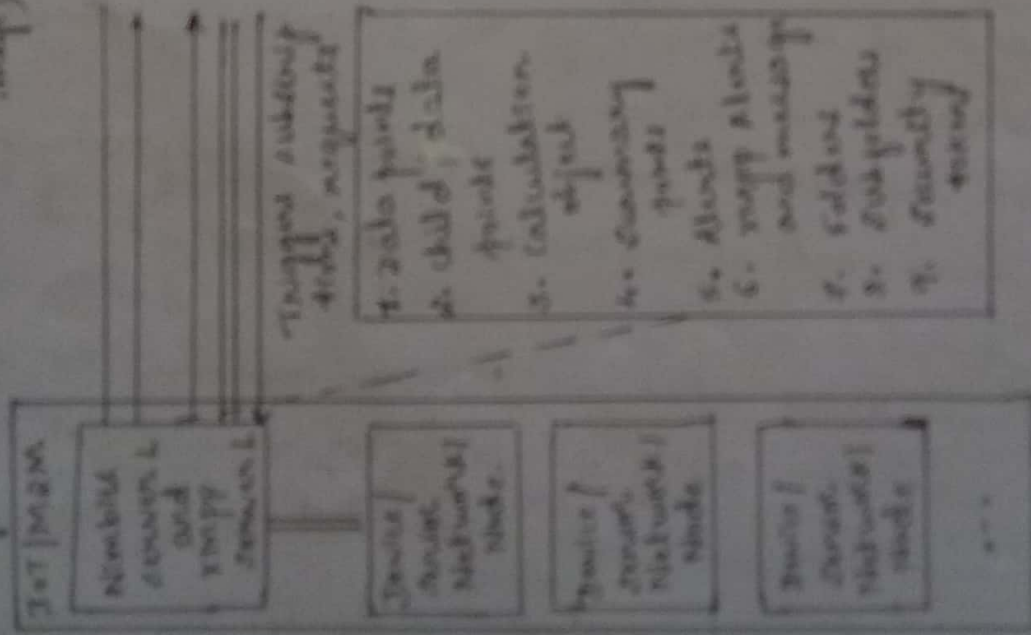 IoT/M2M
Nimbits
server L
and
XMPP
server L
Device/
sensor
Network/
Node
Device/
sensor
Network/
Node
Device/
sensor
Network/
Node
....
Triggers subscrip
tions, requests
1. Data points
2. child, data
points
3. Calculation
object
4. Summary
points
5. Alerts
6. XMPP Alerts
and message
7. Folders
8. Subfolders
9. Security